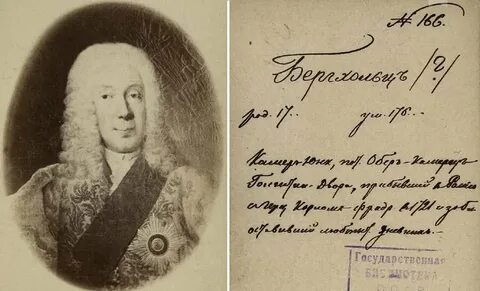 № 166.
Бергхольцъ /?/
род. 17.. ум. 176..
Камеръ-Юнк., пот. Оберъ-Камергеръ
Двора, прибывшій в Россію
Герц. Карломъ Фридр. в 1721 и
оставившій дневникъ.
Государственная
БИБЛИОТЕКА